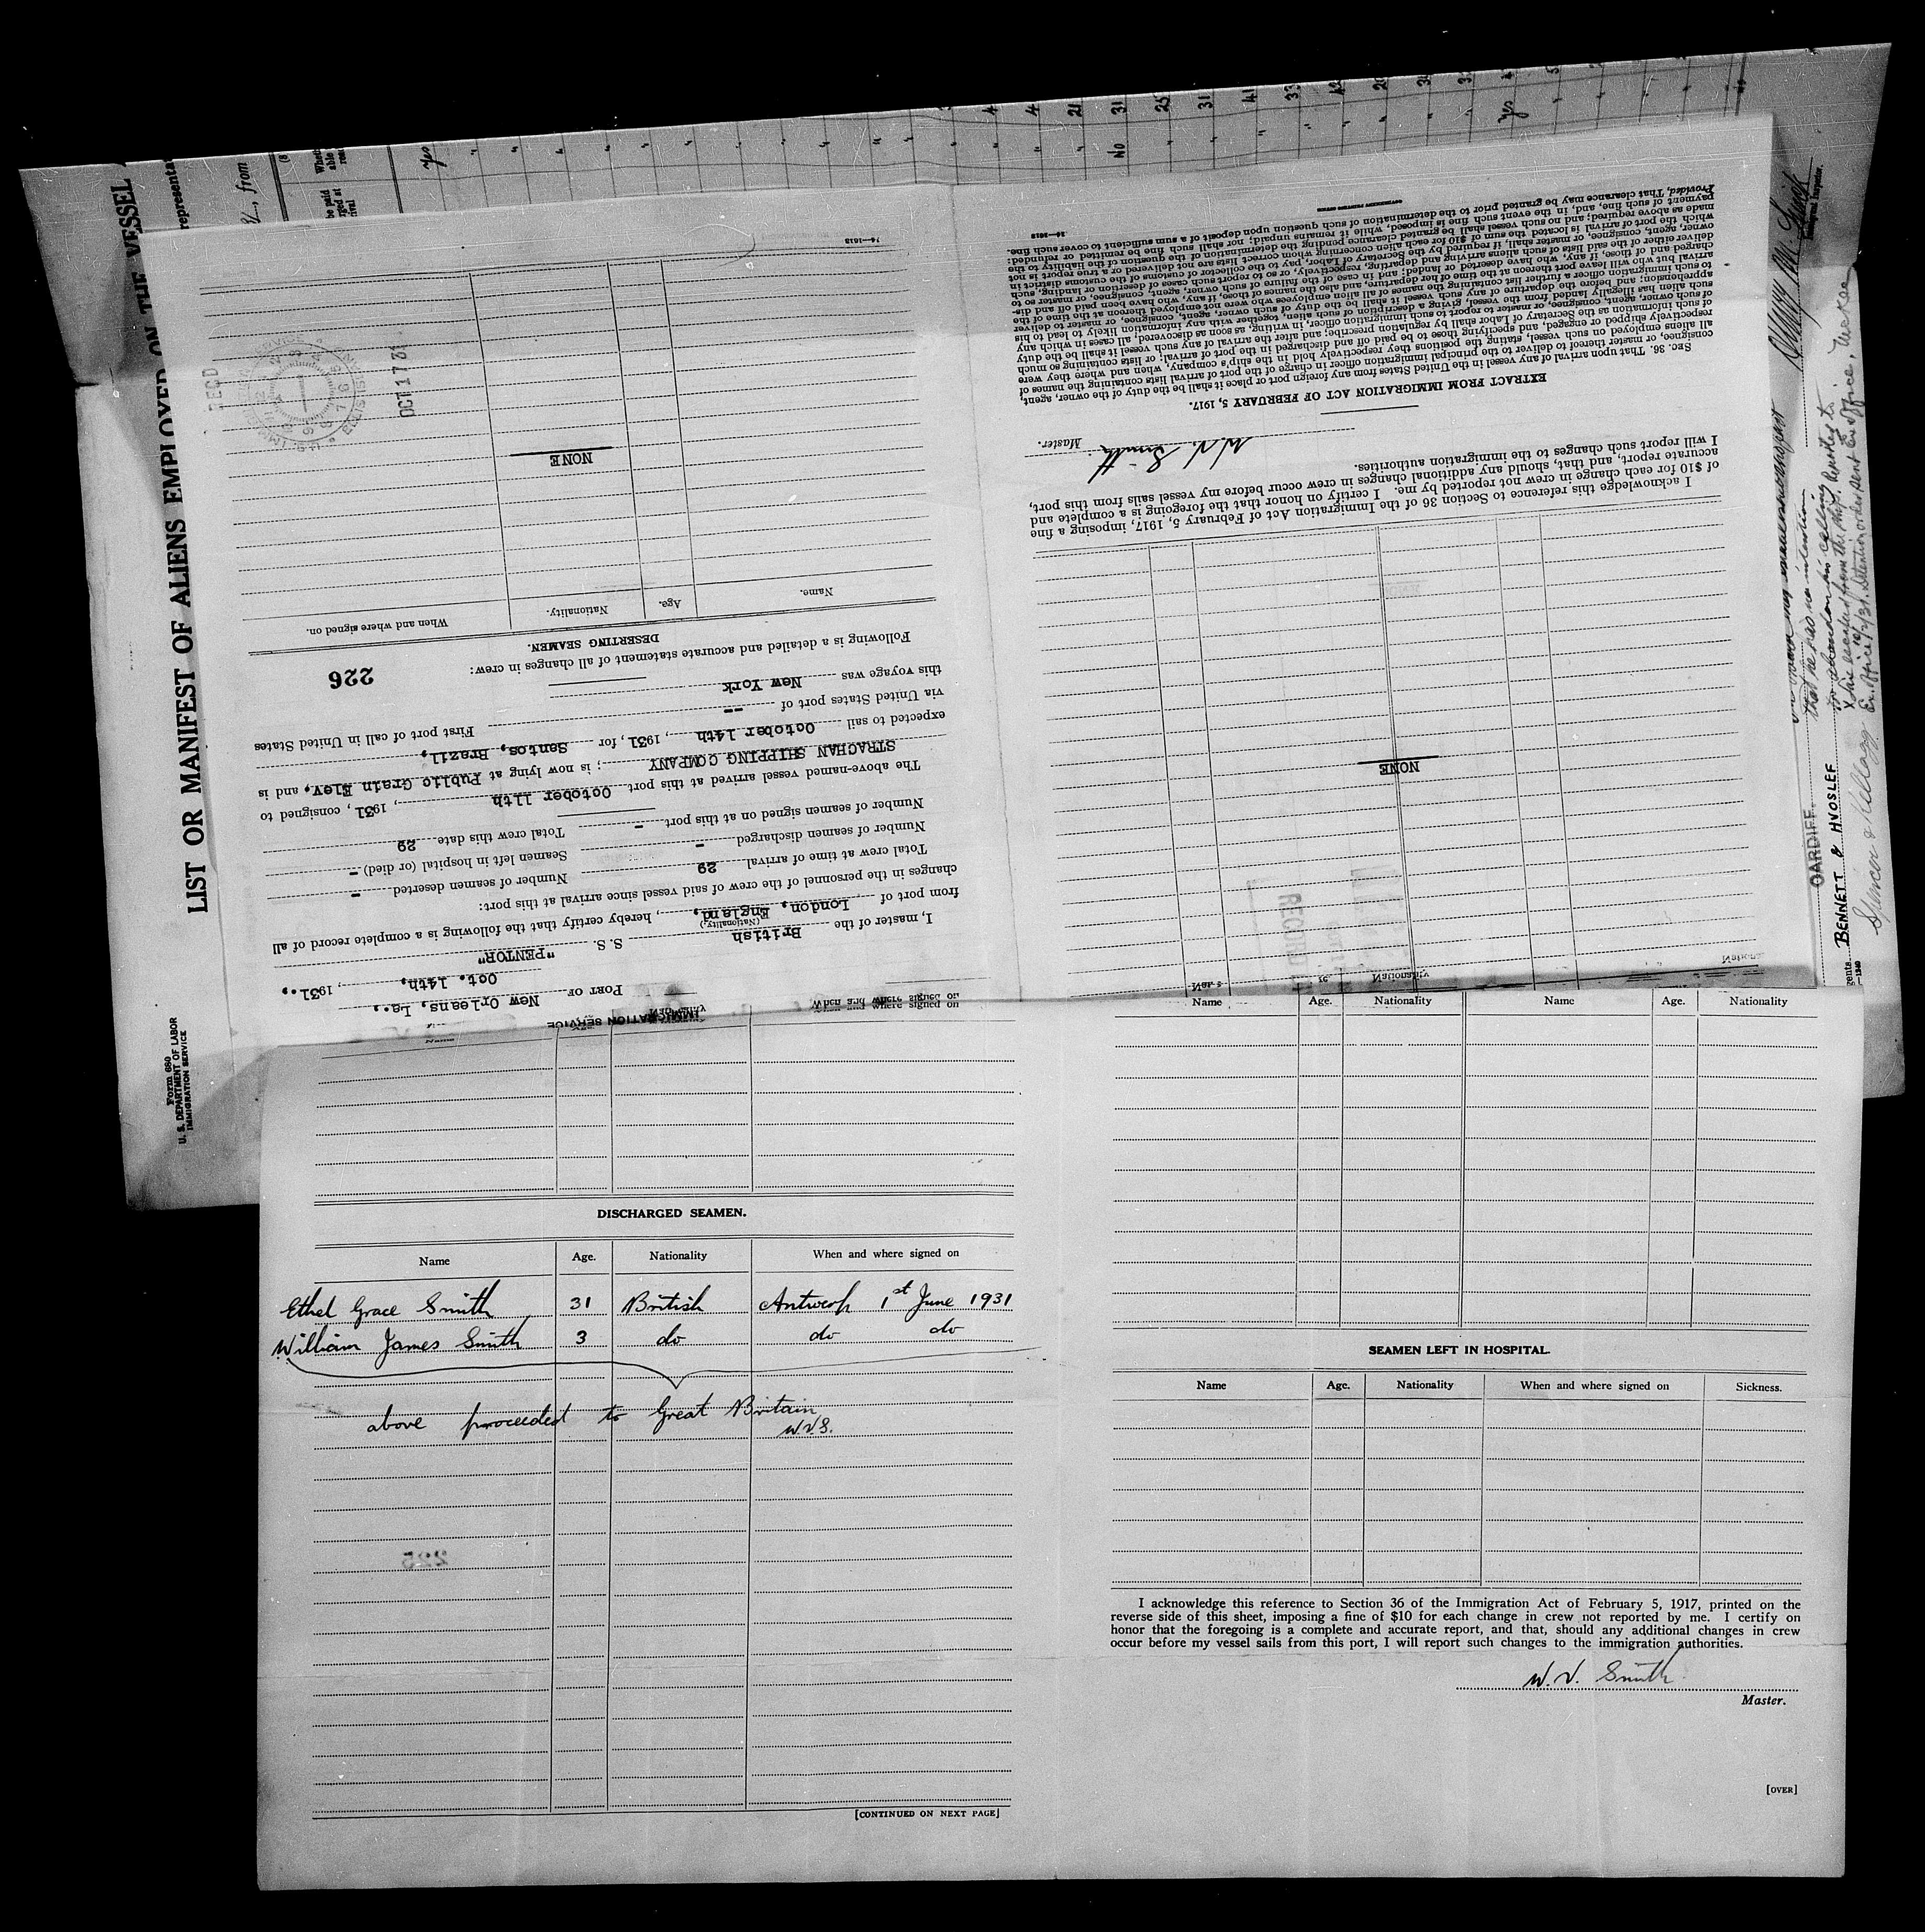 LIST OR MANIFEST OF ALIENS EMPLOYED ON THE VESSEL
Form 680
U. S. DEPARTMENT OF LABOR
IMMIGRATION SERVICE
, from
yes
No
31
25
31
41
33
yes
Immigrant Inspector.
that he has no intention
CARDIFF.
BENNETT & HVOSLEF
IMMIGRATION SERVICE
PORT OF New Orleans, La.,
Oct. 14th, , 1931.,
I, master of the British S. S. "PENTOR"
(Nationality)
from port of London, England, , hereby certify that the following is a complete record of all
changes in the personnel of the crew of said vessel since arrival at this port:
Total crew at time of arrival 29 Number of seamen deserted -
Number of seamen discharged - Seamen left in hospital (or died) -
Number of seamen signed on at this port - Total crew this date 29
The above-named vessel arrived at this port October 11th , 1931, consigned to
STRACHAN SHIPPING COMPANY ; is now lying at Public Grain Elev, and is
expected to sail October 14th , 1931, for Santos, Brazil,
via United States port of -- First port of call in United States
this voyage was New York
Following is a detailed and accurate statement of all changes in crew:
226
DESERTING SEAMEN.
Name. Age. Nationality. When and where signed on.
NONE
REC'D
OCT 17 31
14—1613
NONE
I acknowledge this reference to Section 36 of the Immigration Act of February 5, 1917, imposing a fine
of $10 for each change in crew not reported by me. I certify on honor that the foregoing is a complete and
accurate report, and that, should any additional changes in crew occur before my vessel sails from this port,
I will report such changes to the immigration authorities.
W. V. Smith
Master.
EXTRACT FROM IMMIGRATION ACT OF FEBRUARY 5, 1917.
SEC. 36. That upon arrival of any vessel in the United States from any foreign port or place it shall be the duty of the owner, agent,
consignee, or master thereof to deliver to the principal immigration officer in charge of the port of arrival lists containing the names of
all aliens employed on such vessel, stating the positions they respectively hold in the ship's company, when and where they were
respectively shipped or engaged, and specifying those to be paid off and discharged in the port of arrival; or lists containing so much
of such information as the Secretary of Labor shall by regulation prescribe; and after the arrival of any such vessel it shall be the duty
of such owner, agent, consignee, or master to report to such immigration officer, in writing, as soon as discovered, all cases in which any
such alien has illegally landed from the vessel, giving a description of such alien, together with any information likely to lead to his
apprehension; and before the departure of any such vessel it shall be the duty of such owner, agent, consignee, or master to deliver
to such immigration officer a further list containing the names of all alien employees who were not employed thereon at the time of the
arrival but who will leave port thereon at the time of her departure, and also the names of those, if any, who have been paid off and dis-
charged and of those, if any, who have deserted or landed; and in case of the failure of such owner, agent, consignee, or master so to
deliver either of the said lists of such aliens arriving and departing, respectively, or so to report such cases of desertion or landing, such
owner, agent, consignee, or master shall, if required by the Secretary of Labor, pay to the collector of customs of the customs district in
which the port of arrival is located the sum of $10 for each alien concerning whom correct lists are not delivered or a true report is not
made as above required; and no such vessel shall be granted clearance pending the determination of the question of the liability to the
payment of such fine, and, in the event such fine is imposed, while it remains unpaid; nor shall such fine be remitted or refunded:
Provided, That clearance may be granted prior to the determination of such question upon deposit of a sum sufficient to cover such fine.
14—1613
GOVERNMENT PRINTING OFFICE
When and where signed on
DISCHARGED SEAMEN.
Name Age. Nationality When and where signed on
Ethel Grace Smith 31 British Antwerp 1st June 1931
William James Smith 3 do do do
above proceeded to Great Britain
W.V.S.
225
[CONTINUED ON NEXT PAGE]
Name Age. Nationality Name Age. Nationality
SEAMEN LEFT IN HOSPITAL.
Name Age. Nationality When and where signed on Sickness.
I acknowledge this reference to Section 36 of the Immigration Act of February 5, 1917, printed on the
reverse side of this sheet, imposing a fine of $10 for each change in crew not reported by me. I certify on
honor that the foregoing is a complete and accurate report, and that, should any additional changes in crew
occur before my vessel sails from this port, I will report such changes to the immigration authorities.
W. V. Smith
Master.
[OVER]